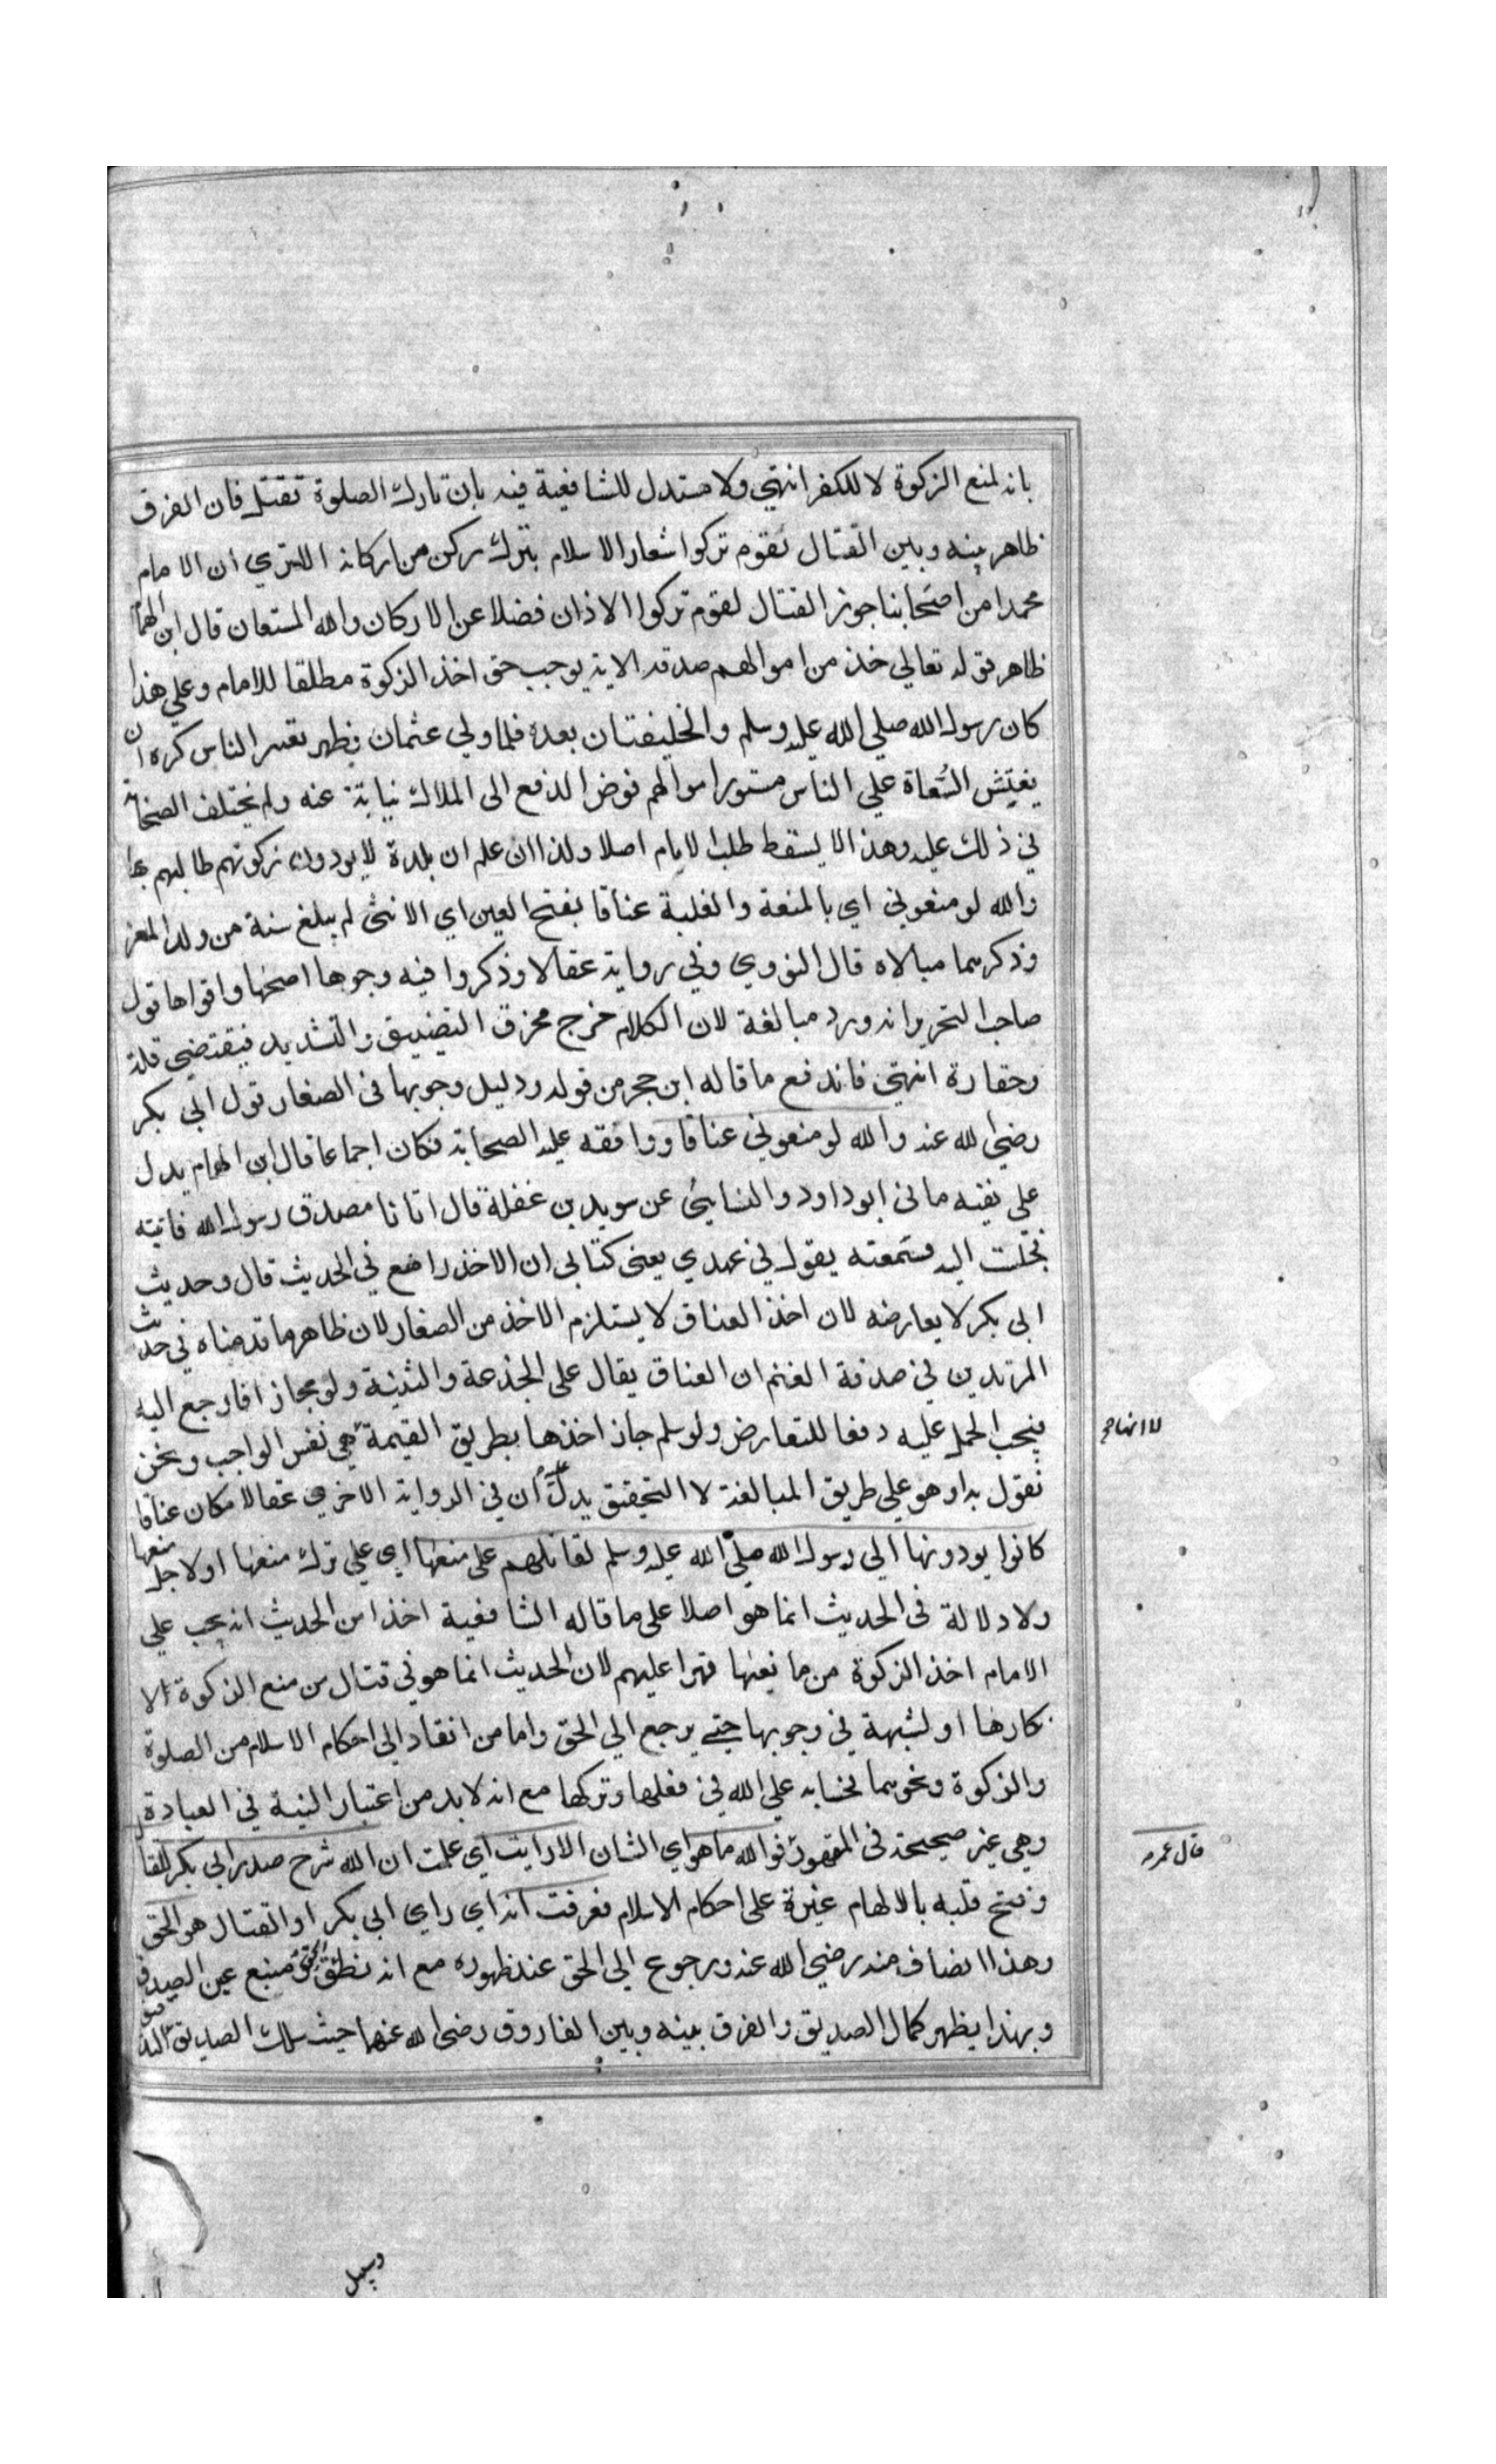 بانه لمنع الزكوة لا للكفر انتهي ولا مستدل للشافعية فيه بان تارك الصلوة تقتل فان الفرق
ظاهر بينه وبين القتال لقوم تركوا شعار الاسلام بترك ركن من اركانه الا تري ان الامام
محمدا من اصحابنا جوز القتال لقوم تركوا الاذان فضلا عن الاركان والله المستعان قال ابن الهمام
ظاهر قوله تعالي خذ من اموالهم صدقة الاية يوجب حق اخذ الزكوة مطلقا للامام وعلي هذا
كان رسول الله صلي الله عليه وسلم والخليفتان بعده فلما ولي عثمان وظهر تغير الناس كره ان
يفتش السُّعاة علي الناس مستور اموالهم ففوض الدفع الى الملاك نيابة عنه ولم يختلف الصحابة
في ذلك عليه وهذا لا يسقط طلب الامام اصلا ولذا ان علم ان بلدة لا يودون زكوتهم طالبهم بها
والله لو منعوني اي بالمنعة والغلبة عناقا بفتح العين اي الانثى لم يبلغ سنة من ولد المعز
وذكرهما مبالاه قال النووي وفي رواية عقالا وذكروا فيه وجوها اصحها واقواها قول
صاحب التحرير انه ورد مبالغة لان الكلام خرج مخرق التضييق والتشديد فيقتضي قلة
وحقارة انتهي فاندفع ما قاله ابن حجر من قوله ودليل وجوبها في الصغار قول ابي بكر
رضي الله عنه والله لو منعوني عناقا ووافقه عليه الصحابة فكان اجماعا قال ابن الهمام يدل
علي نفيه ما في ابو داود والنسايئ عن سويد بن غفلة قال اتانا مصدق رسول الله فاتيته
نجلت اليه فسمعته يقول في عهدي يعنى كتابى ان لا اخذ راضع في الحديث قال وحديث
ابى بكر لا يعارضه لان اخذ العناق لا يستلزم الاخذ من الصغار لان ظاهر ما قدمناه في حديث
المرتدين في صدقة الغنم ان العناق يقال علي الجذعة والثنية ولو مجازا فارجع اليه
فيجب الحمل عليه دفعا للتعارض ولو سلم جاز اخذها بطريق القيمة هي نفس الواجب ونحن
نقول به او هو علي طريق المبالغة لا التحقيق يدل عليه ان في الرواية الاخري عقالا مكان عناقا
كانوا يودونها الي رسول الله صلي الله عليه وسلم لقاتلهم على منعها اي علي ترك منعها او لاجل منعها
ولا دلالة فى الحديث انما هو اصلا على ما قاله الشافعية اخذا من الحديث انه يجب علي
الامام اخذ الزكوة من ما نعها قهرا عليهم لان الحديث انما هو في قتال من منع الزكوة الا
نكارها او لشبهة في وجوبها حتي يرجع الي الحق واما من انقاد الى احكام الاسلام من الصلوة
والزكوة ونحوهما فحسابه علي الله في فعلها وتركها مع انه لابد من اعتبار النية في العبادة
وهي غير صحيحة فى المقهور فوالله ما هو اي الشان الا رايت اي علمت ان الله شرح صدر ابي بكر للقتال
وفتح قلبه بالالهام غيرة على احكام الاسلام فعرفت انه اي راي ابي بكر او القتال هو الحق
وهذا انصاف منه رضي الله عنه ورجوع الي الحق عند ظهوره مع انه نطق الحق منبع عين الصدق
وبهذا يظهر كمال الصديق والفرق بينه وبين الفاروق رضي الله عنهما حيث سلك الصديق
لا انها هي
قال عمر
وسبيل